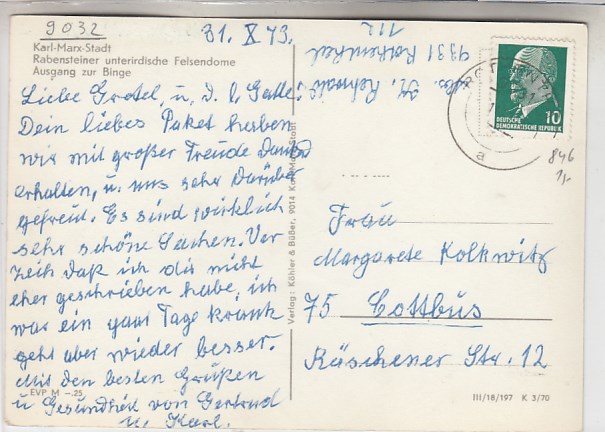 9032
31. X 73.
Karl-Marx-Stadt
Rabensteiner unterirdische Felsendome
Ausgang zur Binge
Liebe Gretel, u. d. l. Gatte!
Dein liebes Paket haben
wir mit großer Freude Dankend
erhalten, u. uns sehr darüber
gefreut. Es sind wirklich
sehr schöne Sachen. Ver
zeih daß ich dir nicht
eher geschrieben habe, ich
war ein paar Tage krank
geht aber wieder besser.
Mit den besten Grüßen
u Gesundheit von Gertrud
u. Karl.
EVP M –.25
Verlag: Köhler & Büßer, 9014 Karl-Marx-Stadt
Abs. K.
9331 Rothenthal
112
DEUTSCHE
DEMOKRATISCHE REPUBLIK
10
a
846
1,-
Frau
Margarete Kolkwitz
75 Cottbus
Räschener Str. 12
III/18/197 K 3/70